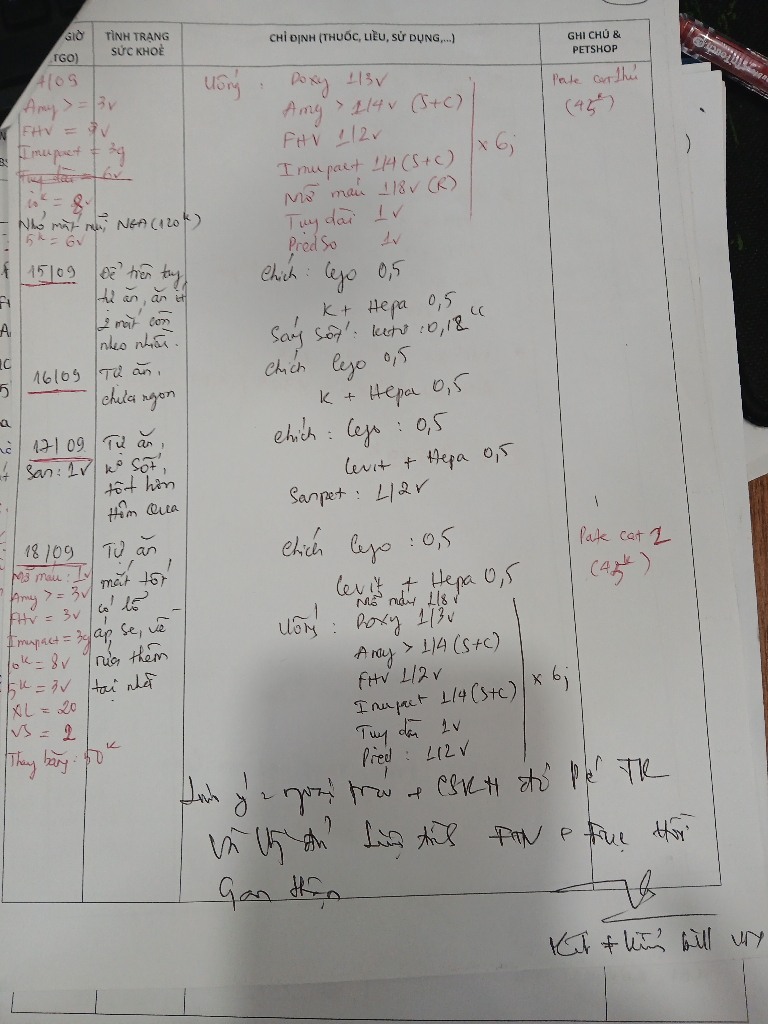 GIỜ
TGO)
TÌNH TRẠNG
SỨC KHOẺ
CHỈ ĐỊNH (THUỐC, LIỀU, SỬ DỤNG,...)
GHI CHÚ &
PETSHOP
/09
Amy > = 3v
FHV = 3v
Imupact = 3g
Tuy dài = 6v
10k =
Nhỏ mắt mũi NGA (120k)
5k = 6v
Uống : Doxy 1/3v
Amy > 1/4v (S+C)
FHV 1/2v
Imupact 1/4 (S+C)
Mỡ máu 1/8v (R)
Tuy dài 1v
Pred So 1v
x 6j
Pate cat
(45k)
15/09
Để trên tay
tự ăn, ăn ít
2 mắt còn
nheo nhiều.
Chích : Cejo 0,5
K + Hepa 0,5
Sáng sốt : Keto : 0,18cc
16/09
Tự ăn,
chưa ngon
Chích Cejo 0,5
K + Hepa 0,5
17/09
San : 1v
Tự ăn,
ko sốt,
tốt hơn
hôm qua
Chích : Cejo : 0,5
Levit + Hepa 0,5
Sanpet : 1/2v
18/09
Mỡ máu : 1v
Amy > = 3v
FHV = 3v
Imupact = 3g
10k = 8v
5k = 3v
XL = 20
VS = 2
Thay băng : 50k
Tự ăn
mắt tốt
có lỗ
áp se, về
rửa thêm
tại nhà
Chích Cejo : 0,5
Levit + Hepa 0,5
Mỡ máu 1/8v
Uống : Doxy 1/3v
Amy > 1/4 (S+C)
FHV 1/2v
Imupact 1/4 (S+C)
Tuy dài 1v
Pred : 1/2v
x 6j
Pate cat 2
(45k)
+ CSKH
Gan thận
bill